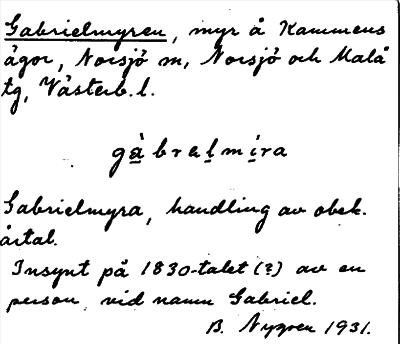 Gabrielmyren, myr å Kammens
ägor, Norsjö sn, Norsjö och Malå
tg, Västerb. l.
gàbrelmira
Gabrielmyra, handling av obek.
årtal.
Insynt på 1830-talet (?) av en
person vid namn Gabriel.
B. Nygren 1931.